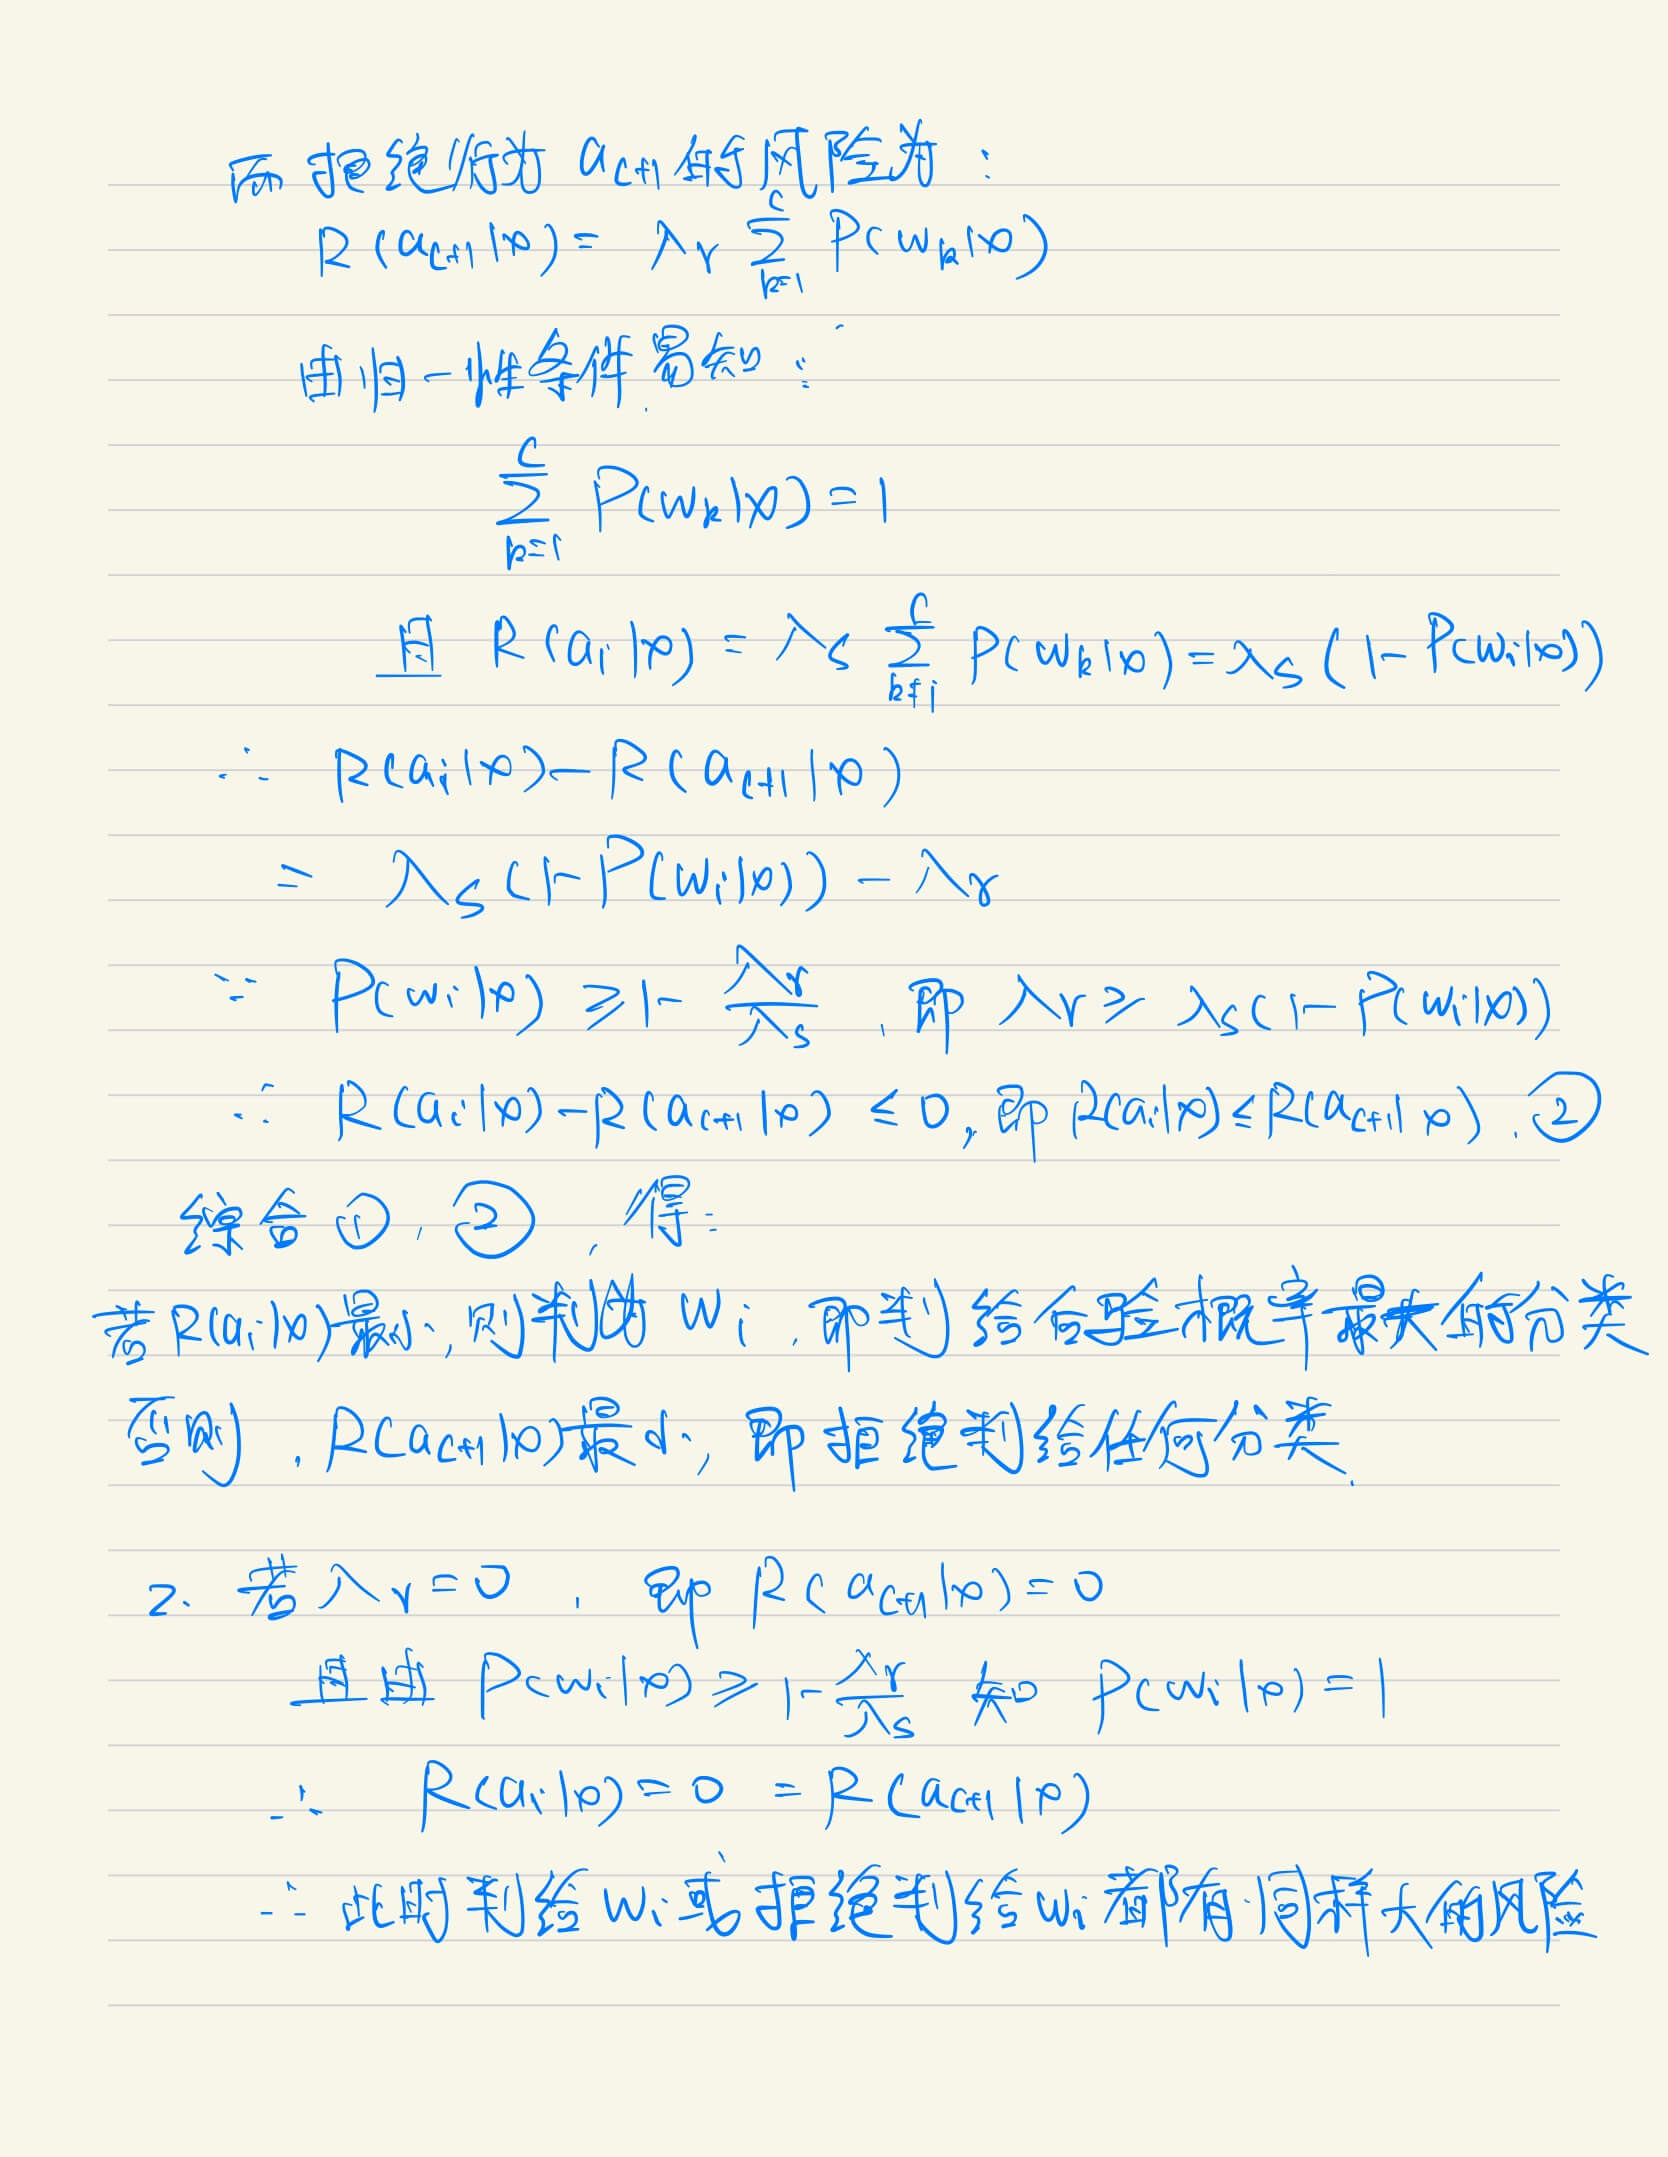 而拒绝行为 a_{c+1} 的风险为：
R(a_{c+1}|x) = λ_r \sum_{k=1}^{c} P(w_k|x)
由归一性条件易知：
\sum_{k=1}^{c} P(w_k|x) = 1
且 R(a_i|x) = λ_s \sum_{k≠i}^{c} P(w_k|x) = λ_s (1 - P(w_i|x))
∴ R(a_i|x) - R(a_{c+1}|x)
= λ_s (1 - P(w_i|x)) - λ_r
∵ P(w_i|x) ≥ 1 - \frac{λ_r}{λ_s}，即 λ_r ≥ λ_s (1 - P(w_i|x))
∴ R(a_i|x) - R(a_{c+1}|x) ≤ 0，即 R(a_i|x) ≤ R(a_{c+1}|x). ②
综合①，②，得：
若 R(a_i|x) 最小，则判为 w_i，即判给后验概率最大的分类
否则，R(a_{c+1}|x) 最小，即拒绝判给任何分类.
2. 若 λ_r = 0，即 R(a_{c+1}|x) = 0
且由 P(w_i|x) ≥ 1 - \frac{λ_r}{λ_s} 知 P(w_i|x) = 1
∴ R(a_i|x) = 0 = R(a_{c+1}|x)
∴ 此时判给 w_i 或拒绝判给 w_i 都有同样大的风险